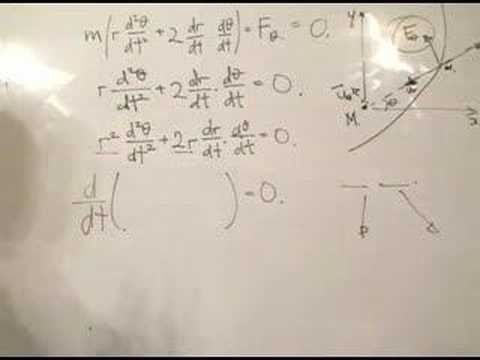 m(r d²θ/dt² + 2 dr/dt · dθ/dt) = F_θ = 0.
r d²θ/dt² + 2 dr/dt · dθ/dt = 0.
r² d²θ/dt² + 2r dr/dt · dθ/dt = 0.
d/dt( ) = 0.
y
M
θ
x